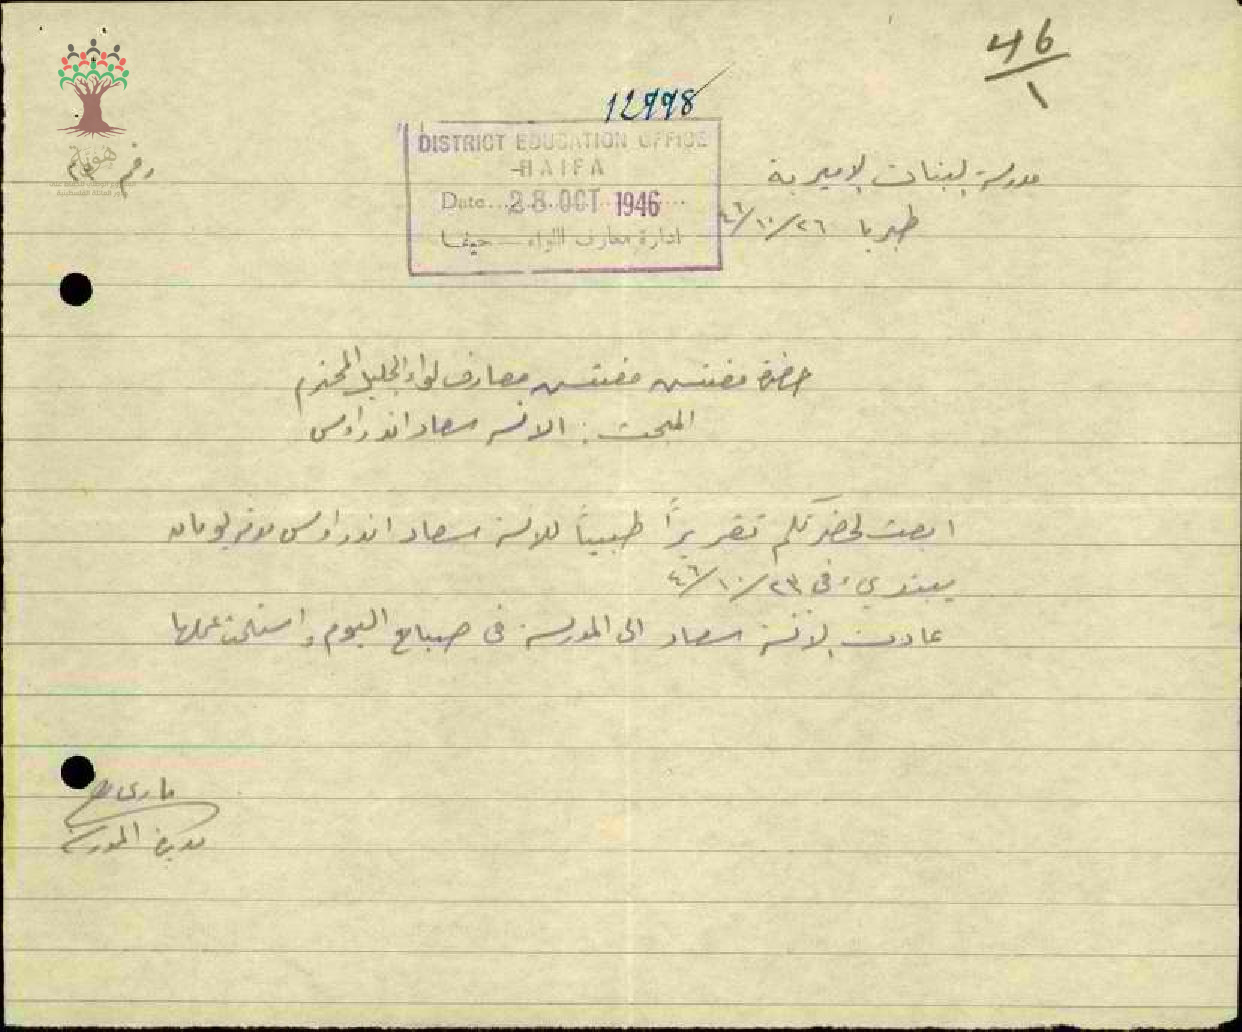 46
1
12998
DISTRICT EDUCATION OFFICE
HAIFA
Date 28 OCT 1946
ادارة معارف اللواء — حيفا
رقم
مدرسة البنات الاميرية
طبريا ٢٦/١٠/٤٦
حضرة مفتش مفتش معارف لواء الجليل المحترم
المبحث : الانسة سعاد اندراوس
ابعث لحضرتكم تقريراً طبياً للانسة سعاد اندراوس
يبتدىء في ٢٣/١٠/٤٦
عادت الانسة سعاد الى المدرسة في صباح اليوم واستلمت عملها
ماري
مديرة المدرسة